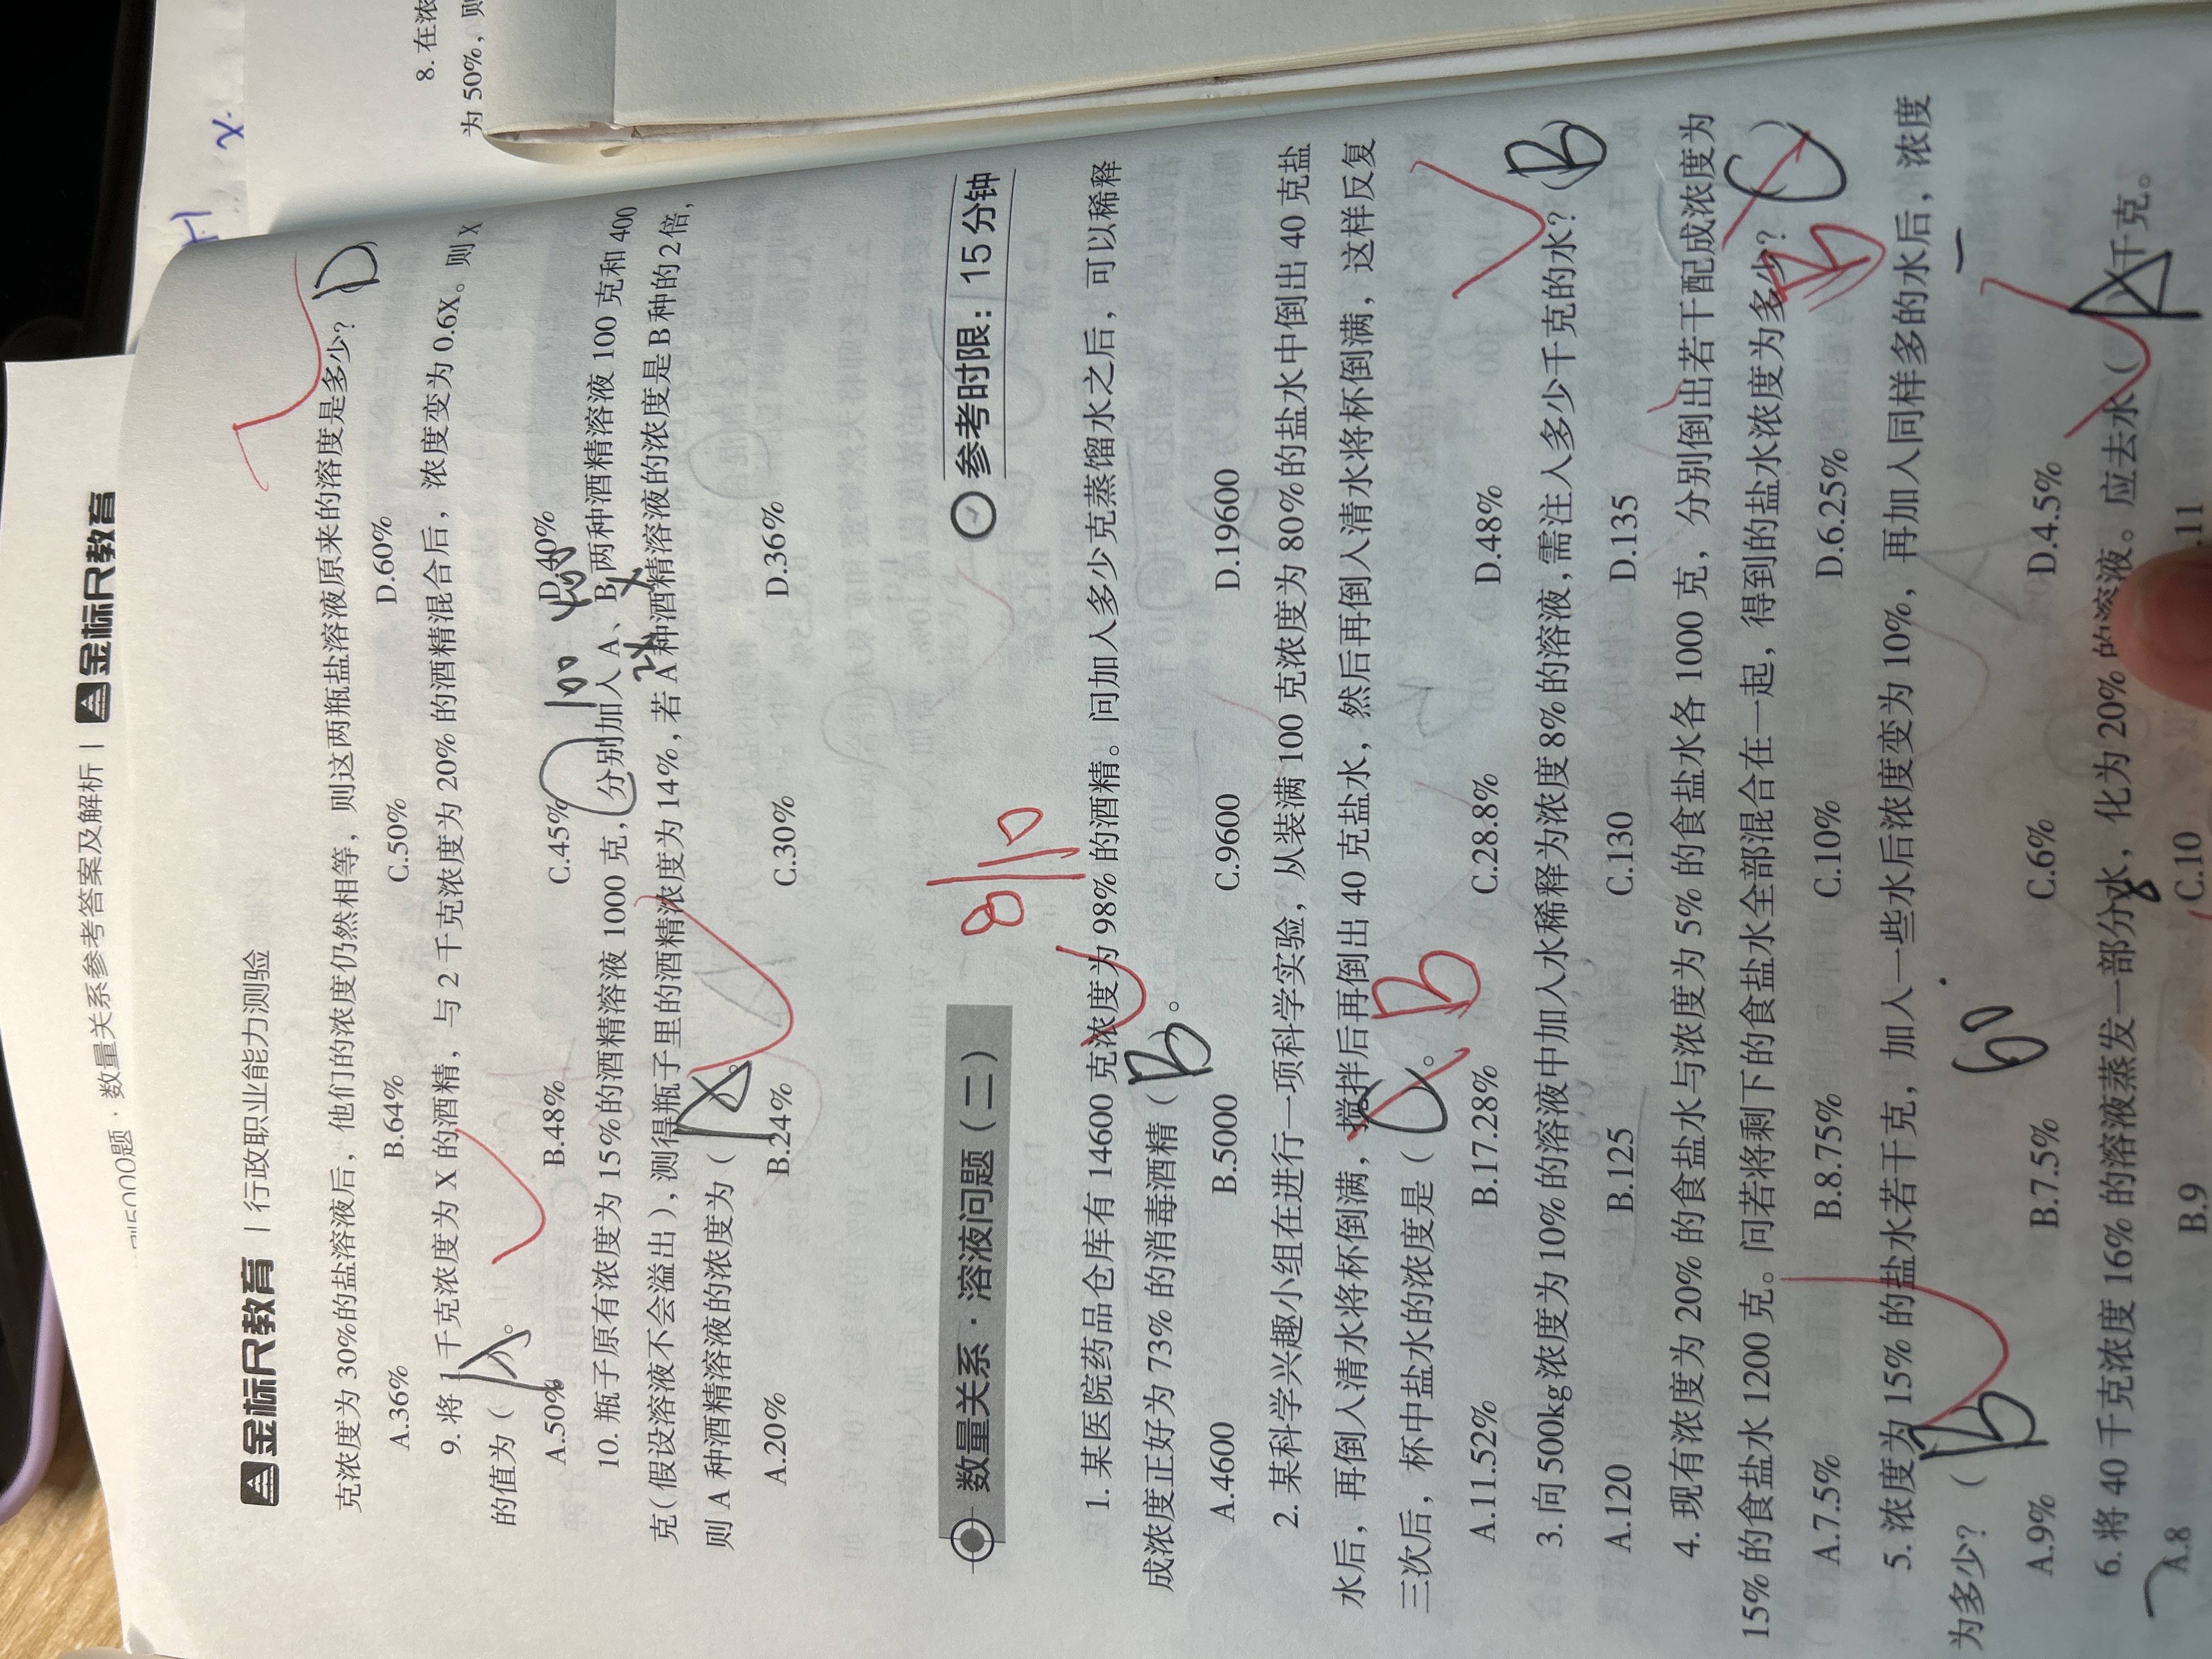 数量关系参考答案及解析 | 金标尺教育
金标尺教育 | 行政职业能力测验
克浓度为 30%的盐溶液后，他们的浓度仍然相等，则这两瓶盐溶液原来的溶度是多少？ D
A.36% B.64% C.50% D.60%
9. 将 1 千克浓度为 X 的酒精，与 2 千克浓度为 20% 的酒精混合后，浓度变为 0.6X。则 X
的值为（ A 。
A.50% B.48% C.45% D.40%
100 400
10. 瓶子原有浓度为 15%的酒精溶液 1000 克，分别加入 A、B 两种酒精溶液 100 克和 400
2x x
克（假设溶液不会溢出），测得瓶子里的酒精浓度为 14%，若 A 种酒精溶液的浓度是 B 种的 2 倍，
则 A 种酒精溶液的浓度为（ A 。
A.20% B.24% C.30% D.36%
数量关系 · 溶液问题（二）
8/10
参考时限：15 分钟
1. 某医院药品仓库有 14600 克浓度为 98% 的酒精。问加入多少克蒸馏水之后，可以稀释
成浓度正好为 73% 的消毒酒精（ B 。
A.4600 B.5000 C.9600 D.19600
2. 某科学兴趣小组在进行一项科学实验，从装满 100 克浓度为 80%的盐水中倒出 40 克盐
水后，再倒入清水将杯倒满，搅拌后再倒出 40 克盐水，然后再倒入清水将杯倒满，这样反复
三次后，杯中盐水的浓度是（ 。 B
A.11.52% B.17.28% C.28.8% D.48%
3. 向 500kg 浓度为 10% 的溶液中加入水稀释为浓度 8% 的溶液，需注入多少千克的水？（B）
A.120 B.125 C.130 D.135
4. 现有浓度为 20% 的食盐水与浓度为 5% 的食盐水各 1000 克，分别倒出若干配成浓度为
15% 的食盐水 1200 克。问若将剩下的食盐水全部混合在一起，得到的盐水浓度为多少？ B C ）
A.7.5% B.8.75% C.10% D.6.25%
5. 浓度为 15% 的盐水若干克，加入一些水后浓度变为 10%，再加入同样多的水后，浓度
为多少？（ B
60
A.9% B.7.5% C.6% D.4.5%
6. 将 40 千克浓度 16% 的溶液蒸发一部分水，化为 20% 的溶液。应去水（ A 千克。
A.8 B.9 C.10 .11
8. 在浓
为 50%，则
x